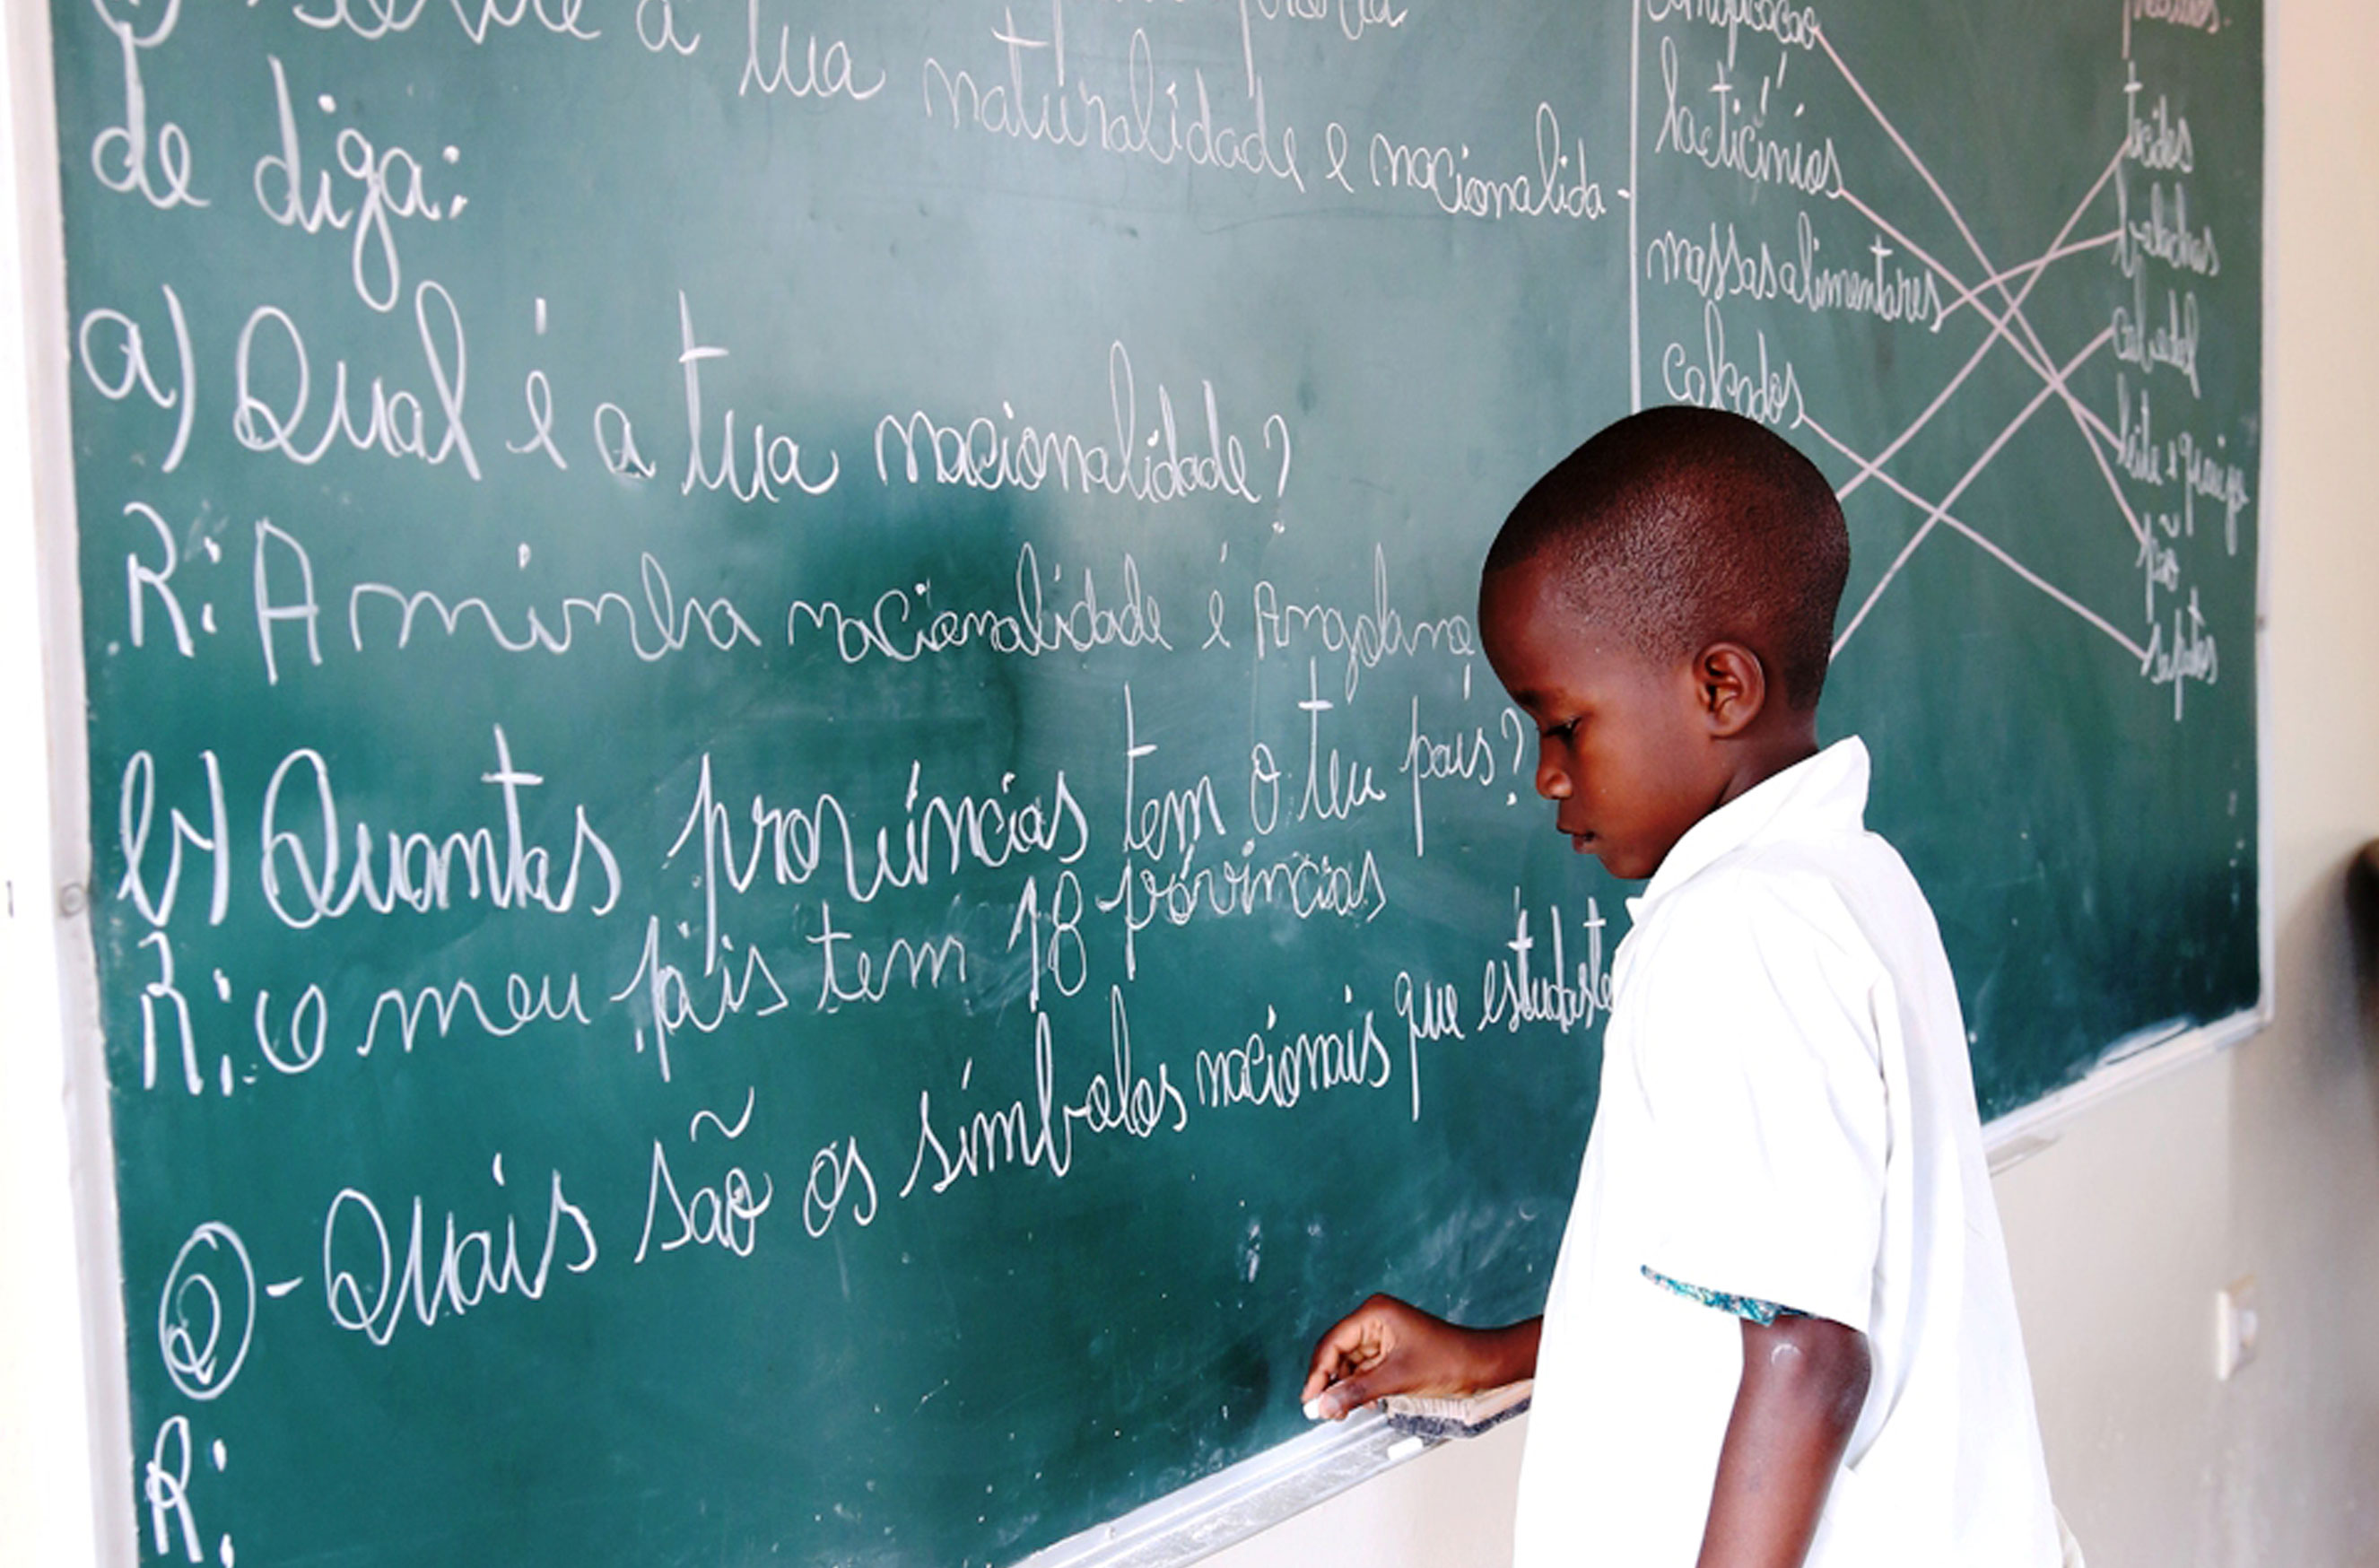 a tua naturalidade e nacionalida-
de diga:
a) Qual é a tua nacionalidade?
R: A minha nacionalidade é Angolano
b) Quantas províncias tem o teu país?
R: O meu país tem 18 províncias
2 - Quais são os símbolos nacionais que estudaste
R:
lacticínios
massas alimentares
calçados
tecidos
leite e queijo
pão
sapatos